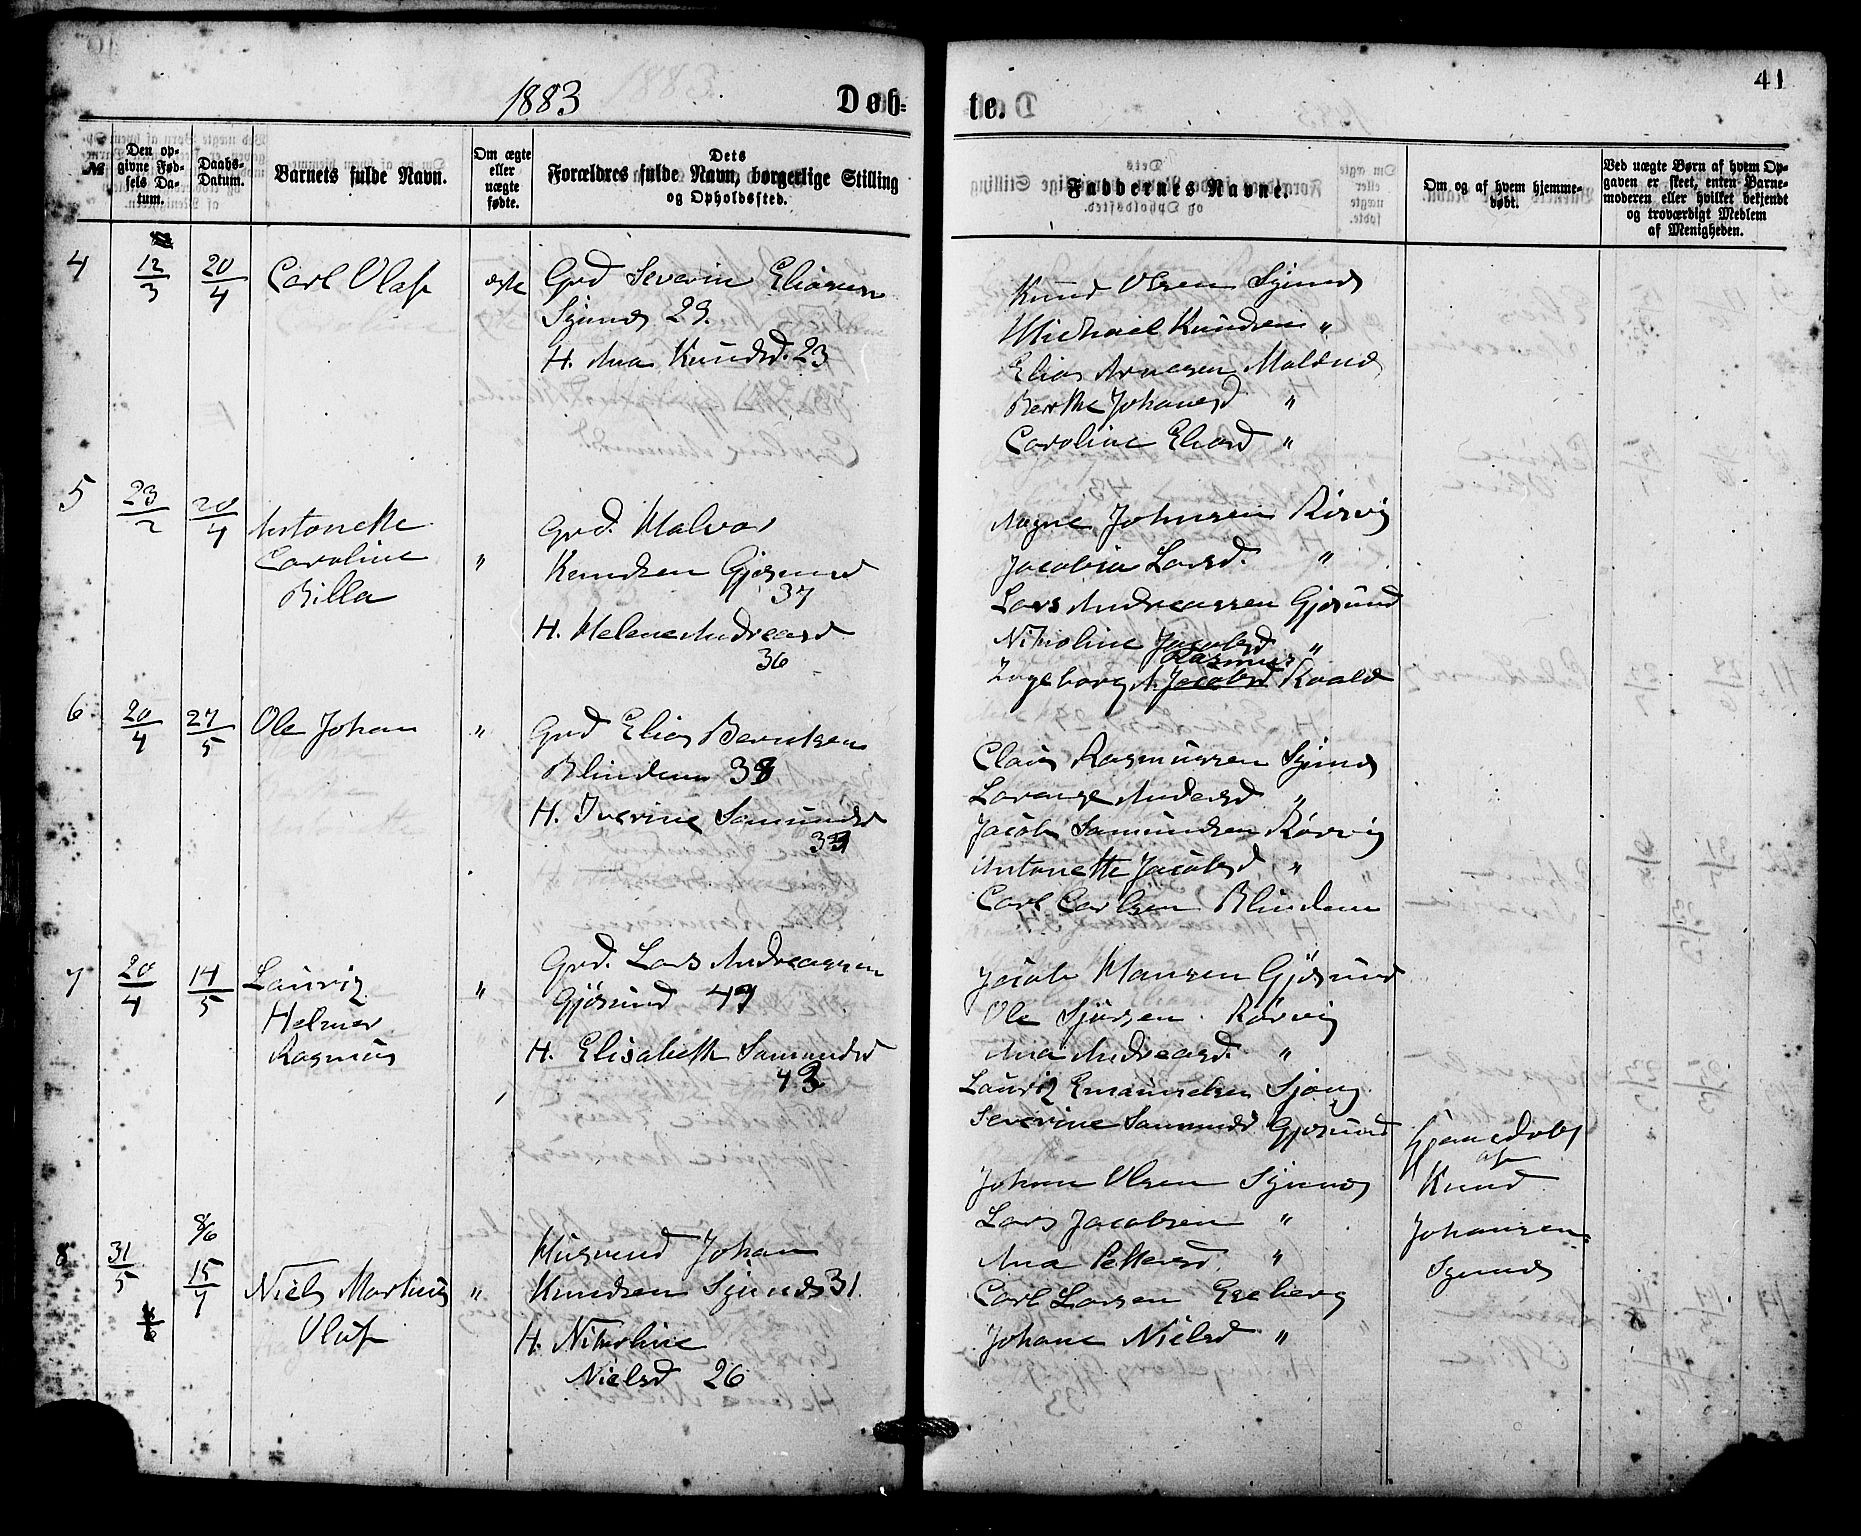 1883
Døb-
te.
41
№
Den op-
givne Fød-
sels Da-
tum.
Daabs-
Datum.
Barnets fulde Navn.
Om ægte
eller
uægte
fødte.
Dets
Forældres fulde Navn, borgerlige Stilling
og Opholdssted.
Faddernes Navne.
Om og af hvem hjemme-
døbt.
Ved uægte Børn af hvem Op-
gaven er skeet, enten Barne-
moderen eller hvilket bekjendt
og troværdigt Medlem
af Menigheden.
4
12/3
20/4
Carl Olaf
ægte
Grd Severin Eliasen
Synnes 29.
H. Ana Knudsd. 23
Knud Olsen Synnes
Michael Knudsen "
Elias Arnesen Molnes
Berthe Johanesd "
Caroline Eliasd "
5
23/2
20/4
Antonette
Caroline
Rilla
"
Grd. Halvor
Knudsen Gjøsund
37
H. Helene Andreasd
36
Magne Johnsen Rørvig
Jacobia Larsd. "
Lars Andreassen Gjøsund
Nikoline Jacobsd "
Rasmus
Ingeborg A. Jacobsd Roald
6
20/4
27/5
Ole Johan
"
Grd Elias Berntsen
Blindem 38
H. Iverine Samundsd
33
Claus Rasmussen Synnes
Lorense Andersd "
Jacob Samundsen Rørvig
Antonette Jacobsd "
Carl Carlsen Blindem
7
20/4
14/5
Lauriz
Helmer
Rasmus
"
Grd. Lars Andreassen
Gjøsund 47
H. Elisabeth Samundsd
43
Jacob Hansen Gjøsund
Ole Sjursen Rørvig
Ana Andreasd. "
Lauriz Emanuelsen Sjong
Severine Samundsd Gjøsund
8
31/5
8/6
15/7
Niels Martinus
Oluf
"
Husmand Johan
Knudsen Synnes 31.
H. Nikoline
Nielsd 26
Johan Olsen Synnes
Lars Jacobsen "
Ana Pettersd. "
Carl Larsen Eseberg
Johane Nielsd "
Hjemedøbt
af
Knud
Johansen
Synnes